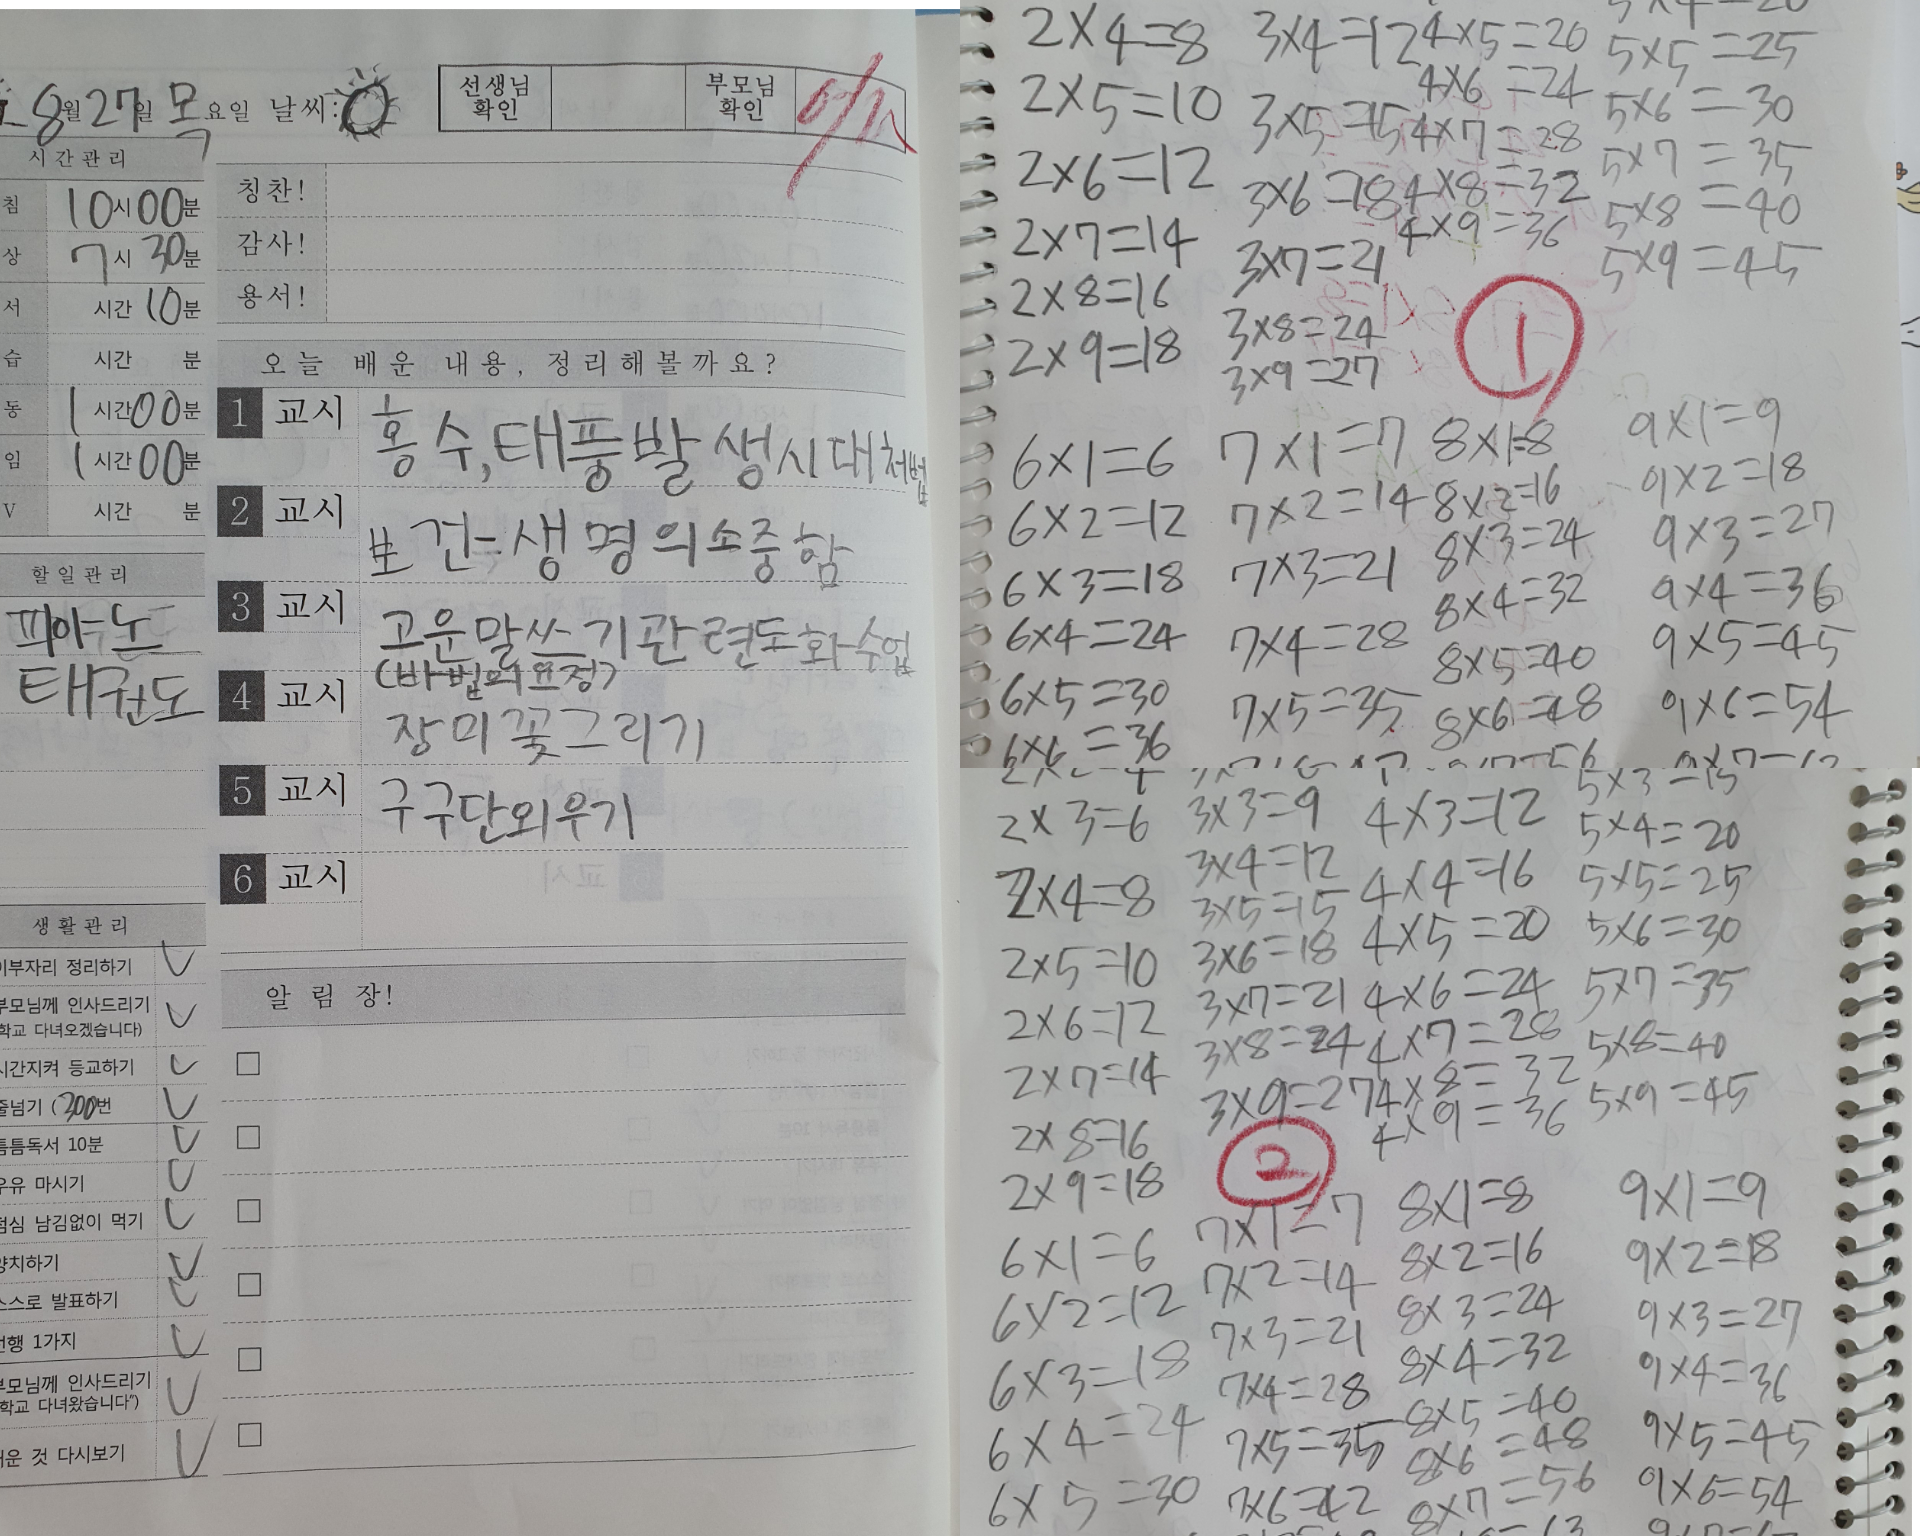 8월 27일 목요일 날씨:
선생님 확인
부모님 확인
시간관리
침 10시 00분
상 7시 30분
서 시간 10분
습 시간 분
동 1시간 00분
임 1시간 00분
V 시간 분
할일관리
피아노
태권도
생활관리
이부자리 정리하기
부모님께 인사드리기
학교 다녀오겠습니다)
시간지켜 등교하기
줄넘기 (300번
틈틈독서 10분
우유 마시기
점심 남김없이 먹기
양치하기
스스로 발표하기
선행 1가지
부모님께 인사드리기
학교 다녀왔습니다")
배운 것 다시보기
칭찬!
감사!
용서!
오늘 배운 내용, 정리해볼까요?
1 교시 홍수,태풍발생시대처법
2 교시 보건=생명의소중함
3 교시 고운말쓰기관련동화수업
(마법의요정)
4 교시 장미꽃그리기
5 교시 구구단외우기
6 교시
알림장!
2×4=8 3×4=12 4×5=20 5×4=20
2×5=10 3×5=15 4×6=24 5×5=25
2×6=12 3×6=18 4×7=28 5×6=30
2×7=14 3×7=21 4×8=32 5×7=35
2×8=16 3×8=24 4×9=36 5×8=40
2×9=18 3×9=27 5×9=45
1
6×1=6 7×1=7 8×1=8 9×1=9
6×2=12 7×2=14 8×2=16 9×2=18
6×3=18 7×3=21 8×3=24 9×3=27
6×4=24 7×4=28 8×4=32 9×4=36
6×5=30 7×5=35 8×5=40 9×5=45
6×6=36 8×6=48 9×6=54
2×3=6 3×3=9 4×3=12 5×3=15
2×4=8 3×4=12 4×4=16 5×4=20
2×5=10 3×5=15 4×5=20 5×5=25
2×6=12 3×6=18 4×6=24 5×6=30
2×7=14 3×7=21 4×7=28 5×7=35
2×8=16 3×8=24 4×8=32 5×8=40
2×9=18 3×9=27 4×9=36 5×9=45
2
6×1=6 7×1=7 8×1=8 9×1=9
6×2=12 7×2=14 8×2=16 9×2=18
6×3=18 7×3=21 8×3=24 9×3=27
6×4=24 7×4=28 8×4=32 9×4=36
6×5=30 7×5=35 8×5=40 9×5=45
7×6=42 8×6=48 9×6=54
8×7=56